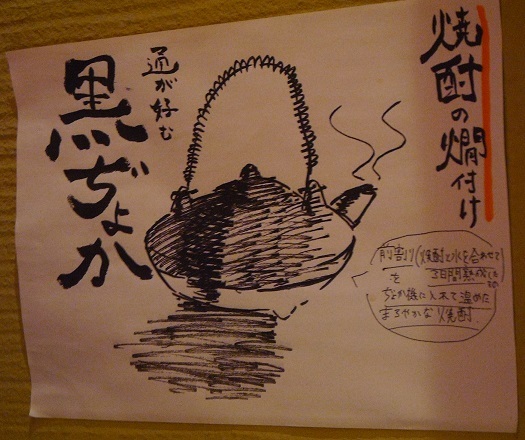 焼酎の燗付け
通が好む
黒ぢょか
前割り(焼酎と水を合わせて
3日間熟成したもの
を
ぢょか様に入れて温めた
まろやかな焼酎